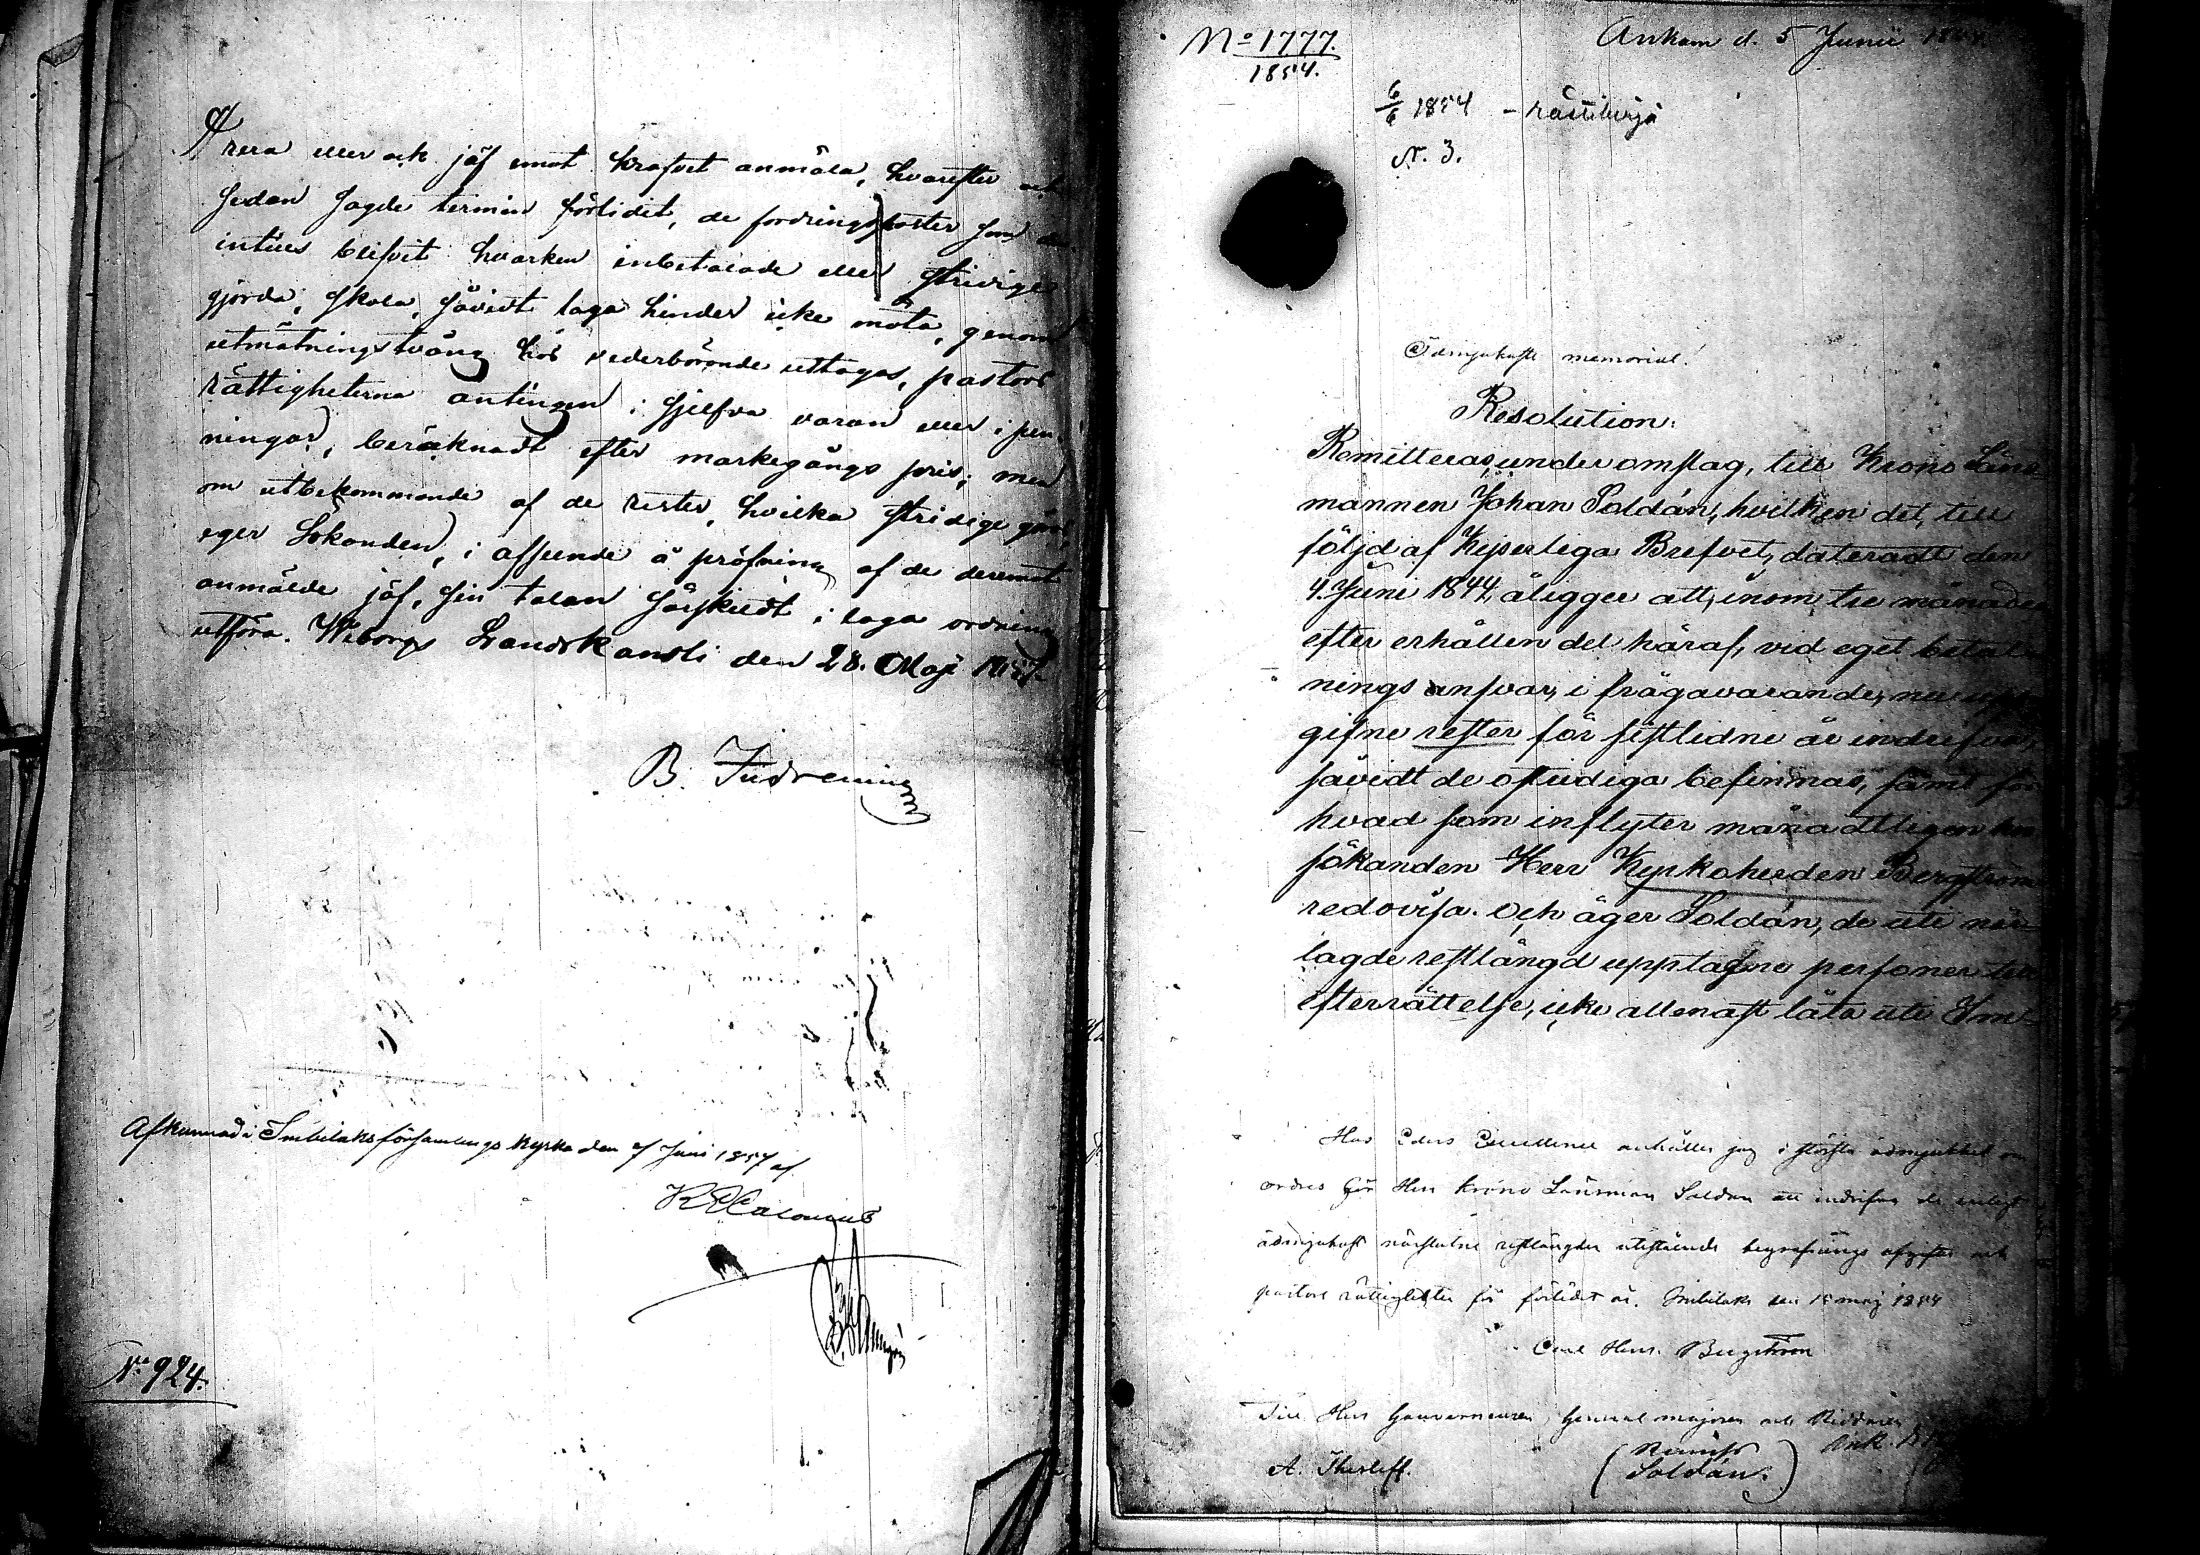 rera eller ock jäf emot krafvet anmäla, hvarefter och
sedan sagde termin förlidit, de fordringsposter som der-
intills blifvit hvarken inbetalade eller stridiga
gjorda, skola, såvidt laga hinder icke möta, genom
utmätningstvång hos vederbörande uttagas, pastors
rättigheterna antingen i sjelfva varan eller i pen-
ningar, beräknadt efter markegångs pris; men
om utbekommande af de rester, hvilka stridige göras,
eger Sökanden, i afseende å pröfning af de deremot
anmälde jäf, sin talan särskildt i laga ordning
utföra. Wiborgs Landskansli den 28. Maji 1857.
B. Indrenius
Afkunnad i Imbilaks församlings kyrka den 7 Juni 1857 af
No 924.
No 1777.
1854.
Ankom d. 5 Junii
6/6 1854 - rästikirja
N. 3.
Ödmjukaste memorial.
Resolution:
Remitteras, under omslag, till Krono Läns-
mannen Johan Soldán, hvilken det, till
följd af Kejserliga Brefvet, dateradt den
4. Juni 1844, åligger att, inom tre månader
efter erhållen del häraf, vid eget betal-
nings ansvar, i frågavarande,
gifne rester för sistlidne år indrifva,
såvidt de ostridiga befinnas, samt för
hvad som inflyter månadtligen hos
sökanden Herr Kyrkoherden Bergström
redovisa. Och äger Soldán, de uti när-
lagde restlängd upptagne personer till
efterrättelse, icke allenast låta uti Im-
Hos Eders Excellence anhåller jag i största ödmjukhet om
ordres för Herr Krono Länsman Soldan att indrifva de enligt
ödmjukast närslutne restlängder utestående begrafnings afgifter och
pastors rättigheter för förlidet år. Imbilaks den 15 maj 1854
Carl Henr. Bergström
Till Herr Gouverneuren, General majoren och Riddaren
A. Thesleff.
(
Soldán.)